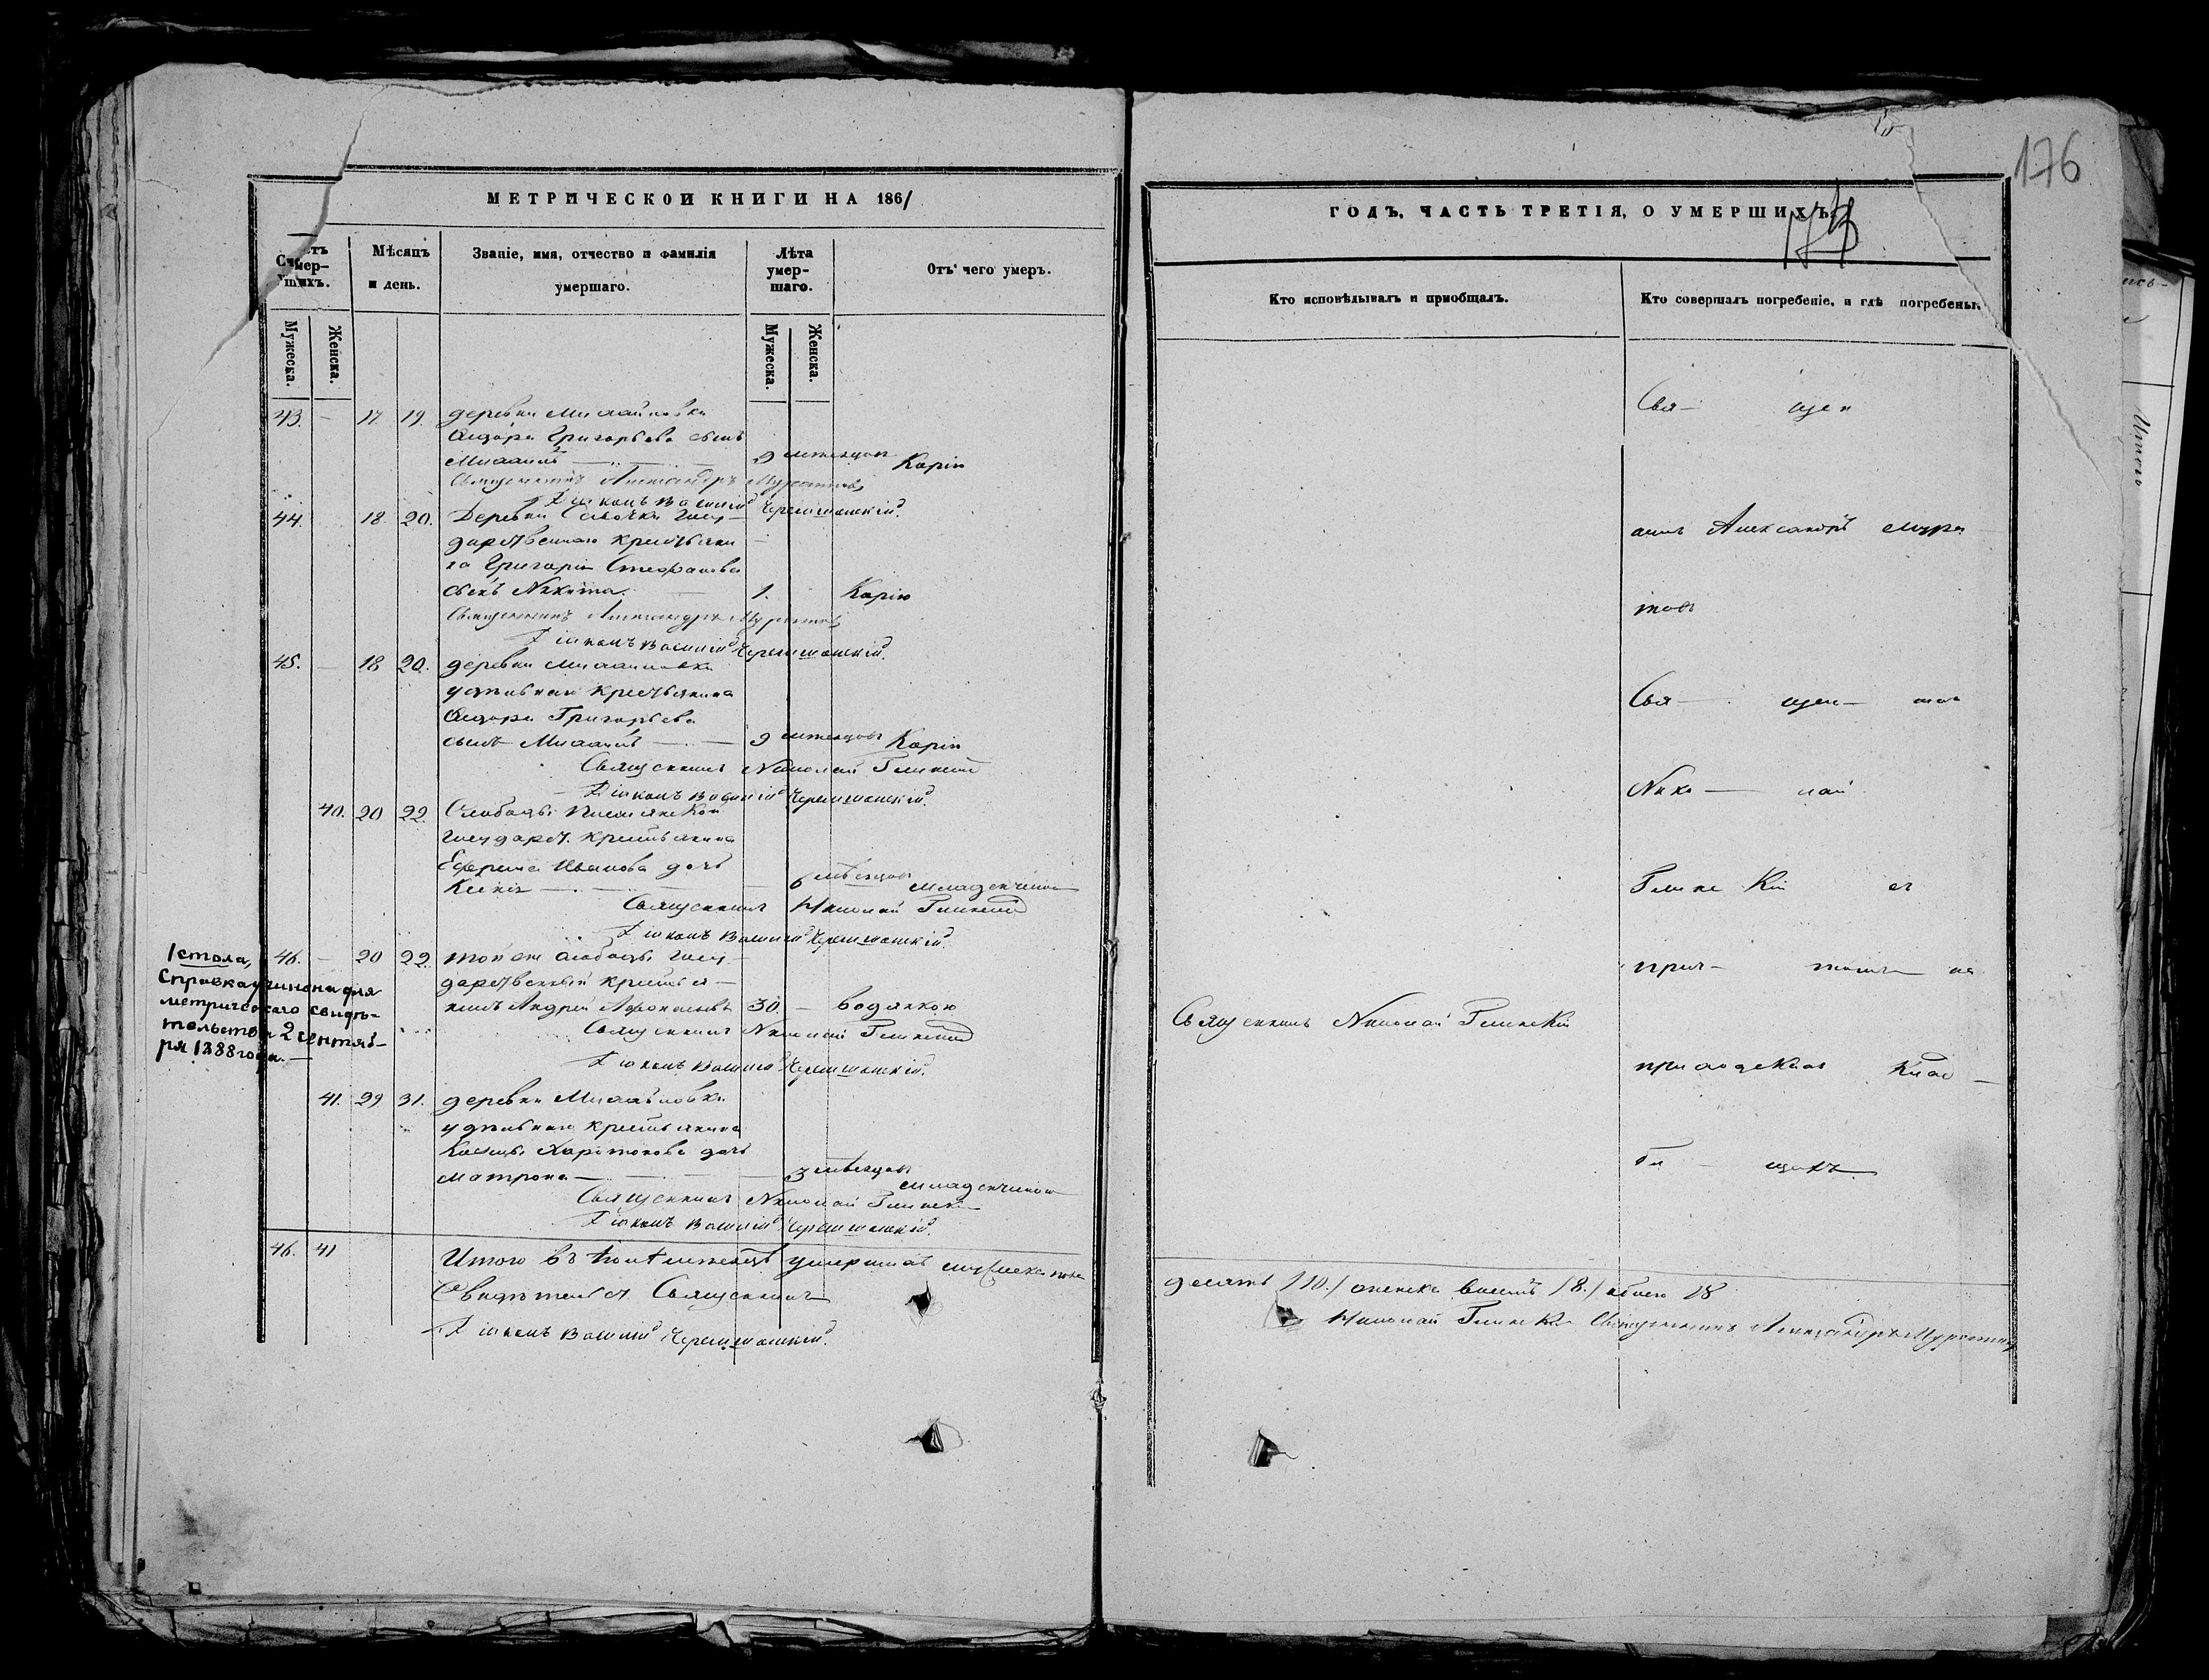 МЕТРИЧЕСКОЙ КНИГИ НА 1861
Счетъ умершихъ.
Мѣсяцъ и день.
Званіе, имя, отчество и фамилія умершаго.
Лѣта умершаго.
Отъ чего умеръ.
Мужеска. Женска.
Мужеска. Женска.
43. — 17 19. деревни Михайловки
Григорьева сынъ
Михаилъ — 9 мѣсяцовъ Корію
Священникъ Александръ Муратовъ
Діаконъ Василій Черемшанскій.
44. 18 20. Деревни Савочки госу-
дарственнаго крестьяни-
на Григорія Стефанова
сынъ Никита. — 1. Корію
Священникъ Александръ Муратовъ
Діаконъ Василій Черемшанскій.
45. — 18 20. деревни Михайловки
удѣльнаго крестьянина
Григорьева
сынъ Михаилъ — 9 мѣсяцовъ Корію
Священникъ Николай Глинскій
Діаконъ Василій Черемшанскій.
40. 20 22. Слободы
государст. крестьянина
Ефрема Иванова дочь
6 мѣсяцовъ младенчиною
Священникъ Николай Глинскій
Діаконъ Василій Черемшанскій.
1 стола,
Справка учинена для
метрическаго свидѣ-
тельства 2 сентяб-
ря 1888 года. —
46. — 20 22. той же слободы госу-
дарственный крестья-
нинъ Андрей Афонасьевъ 30. — водянкою
Священникъ Николай Глинскій
Діаконъ Василій Черемшанскій.
41. 29 31. деревни Михайловки
удѣльнаго крестьянина
Харитонова дочь
Матрона — 3 мѣсяцовъ младенчиною
Священникъ Николай Глинскій
Діаконъ Василій Черемшанскій.
46. 41 Итого въ мѣсяцѣ умершихъ мужеска пола
Священникъ
Діаконъ Василій Черемшанскій.
176
ГОДЪ, ЧАСТЬ ТРЕТІЯ, О УМЕРШИХЪ.
Кто исповѣдывалъ и пріобщалъ.
Кто совершалъ погребеніе, и гдѣ погребены.
Свя— щен
никъ Александръ Мура
товъ
Свя— щен— никъ
Нико— лай
Глинс кій съ
прич— томъ на
Священникъ Николай Глинскій
приходскомъ клад—
би — щахъ
десять /10./ женска восемь /8./ обоего 18
Николай Глинскій Священникъ Александръ Муратовъ
Итого